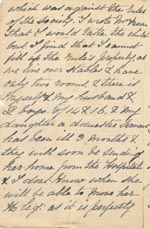 which was against the rules
of the Society. I wrote Mr
that I would take the child
but I find that I cannot
fill up the Rules properly, as
we live over Stables & have
only two rooms & there is
myself & my husband &
2 boys of 14 & 16. & my
daughter a domestic servant
has been ill 3 months &
she will soon be sent
her home from the hospital
& I don't know when she
will be able to move her
leg as it is perfectly